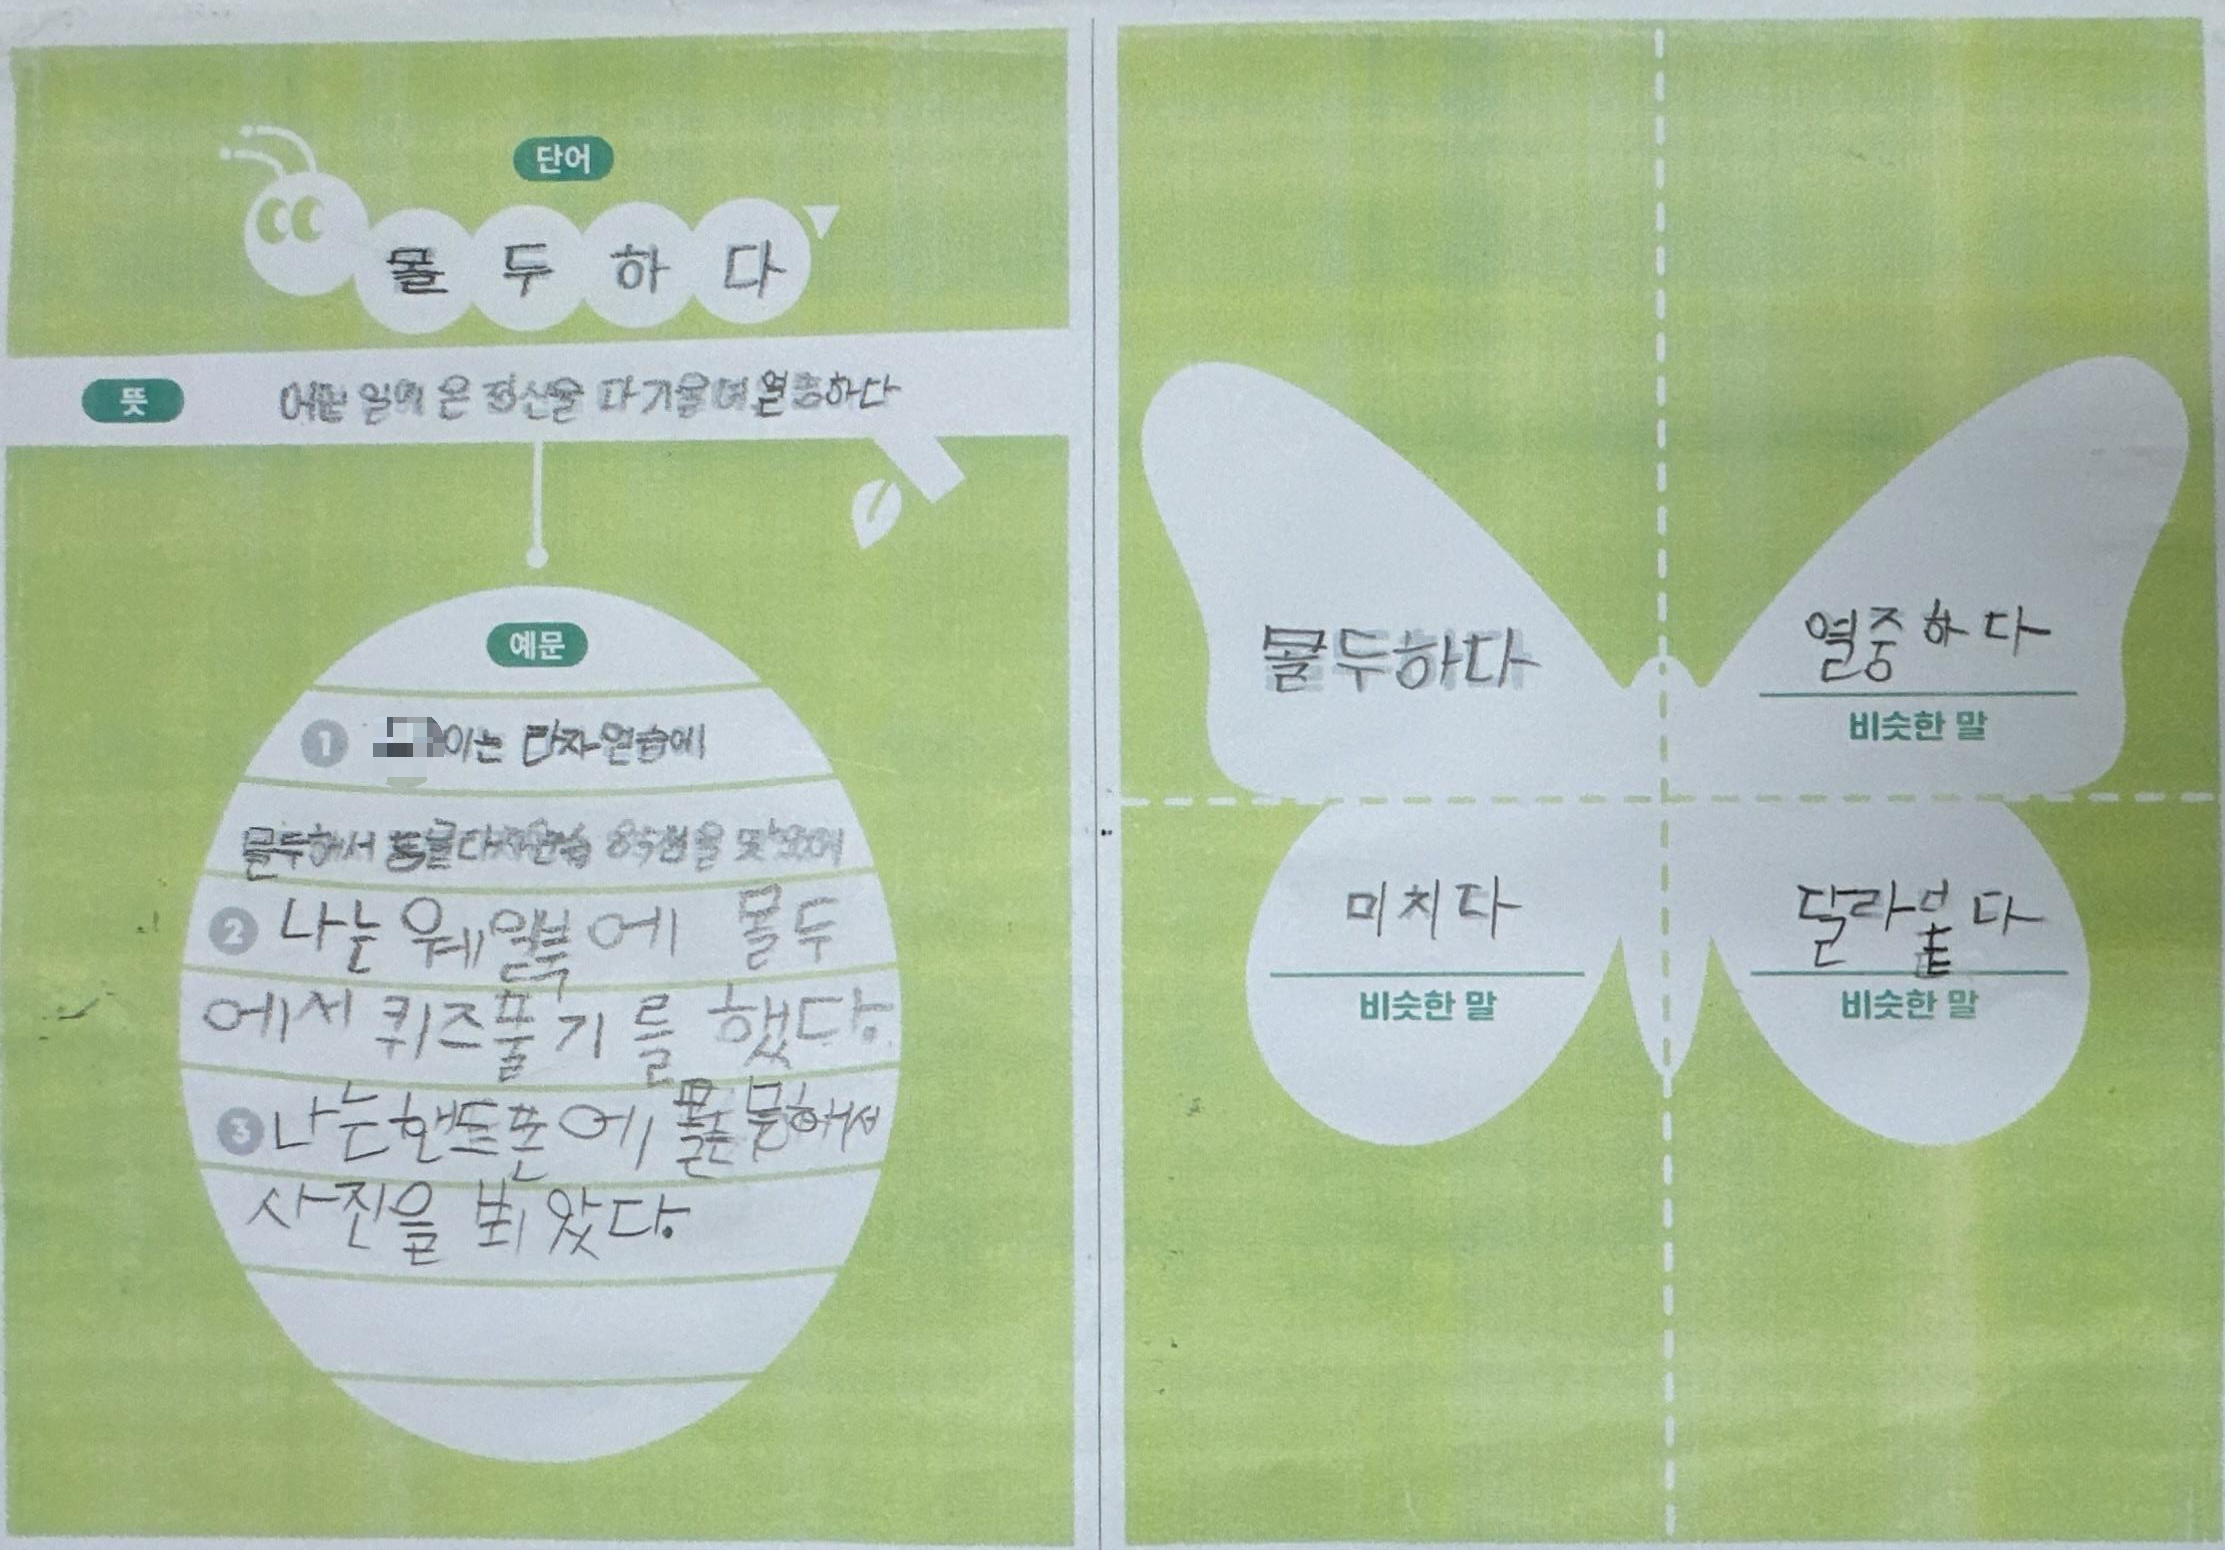 단어
몰두하다
뜻 어떤 일에 온 정신을 다 기울여 열중하다
예문
1 이는 타자연습에
몰두해서 동물타자연습 점을 맞았어
2 나는 웨일북에 몰두
에서 퀴즈풀기를 했다.
3 나는핸드폰에 해서
사진을 뵈았다.
몰두하다
열중하다
비슷한 말
미치다
비슷한 말
달라붙다
비슷한 말